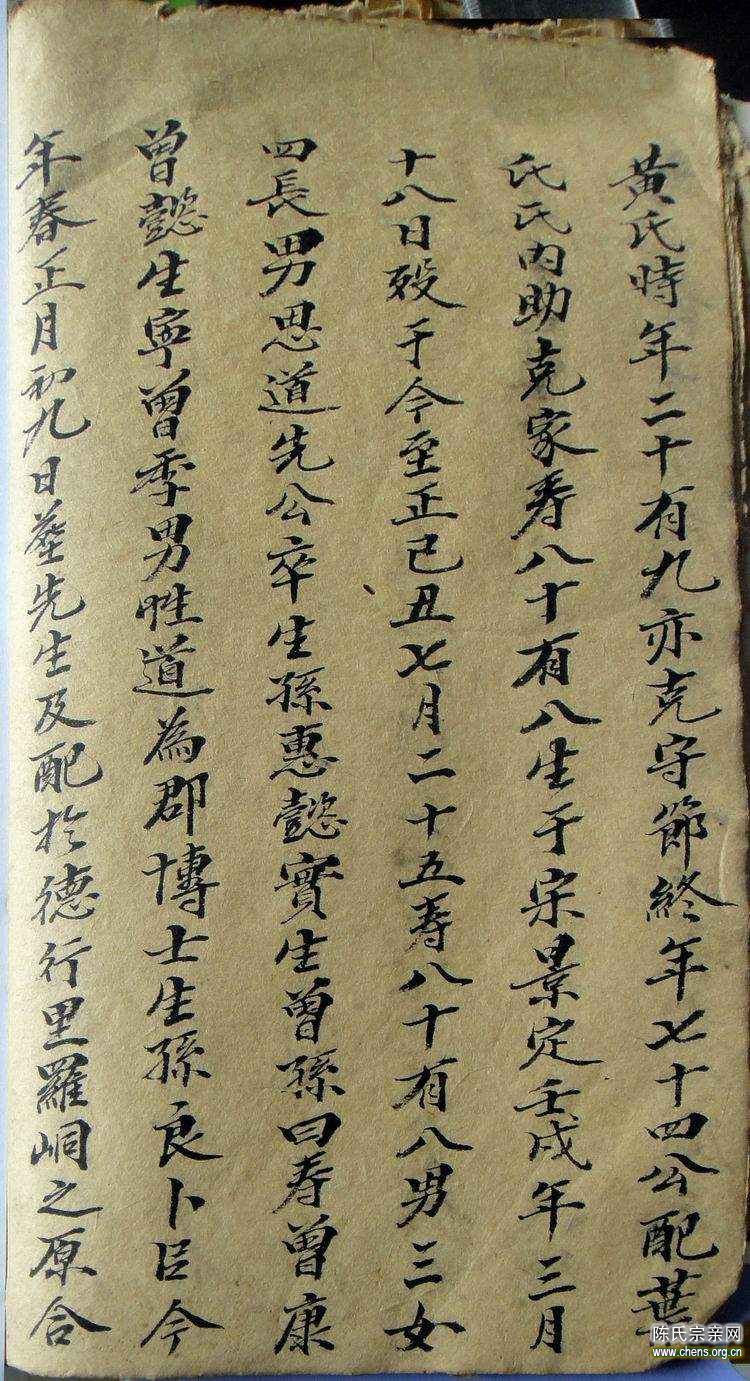 黄氏時年二十有九亦克守節終年七十四公配葉
氏氏内助克家寿八十有八生于宋景定壬戌年三月
十八日殁于今至正己丑七月二十五寿八十有八男三女
四長男思道先公卒生孫惠懿實生曾孫曰寿曾康
曾懿生寧曾季男性道為郡博士生孫良卜臣今
年春正月初九日塟先生及配扵德行里羅峒之原合
陈氏宗亲网
www.chens.org.cn